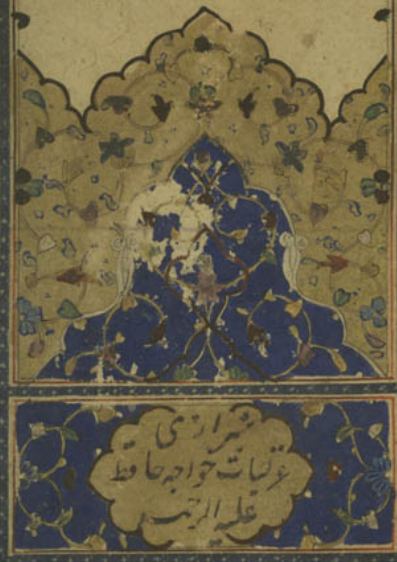 شیرازی
غزلیات خواجه حافظ
علیه الرحمه